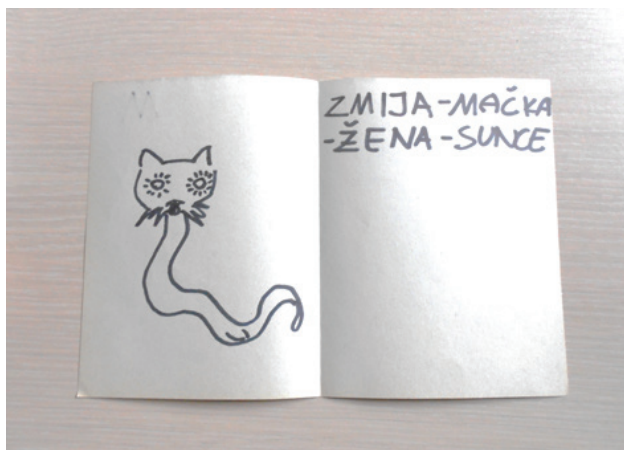 ZMIJA-MAČKA
-ŽENA-SUNCE